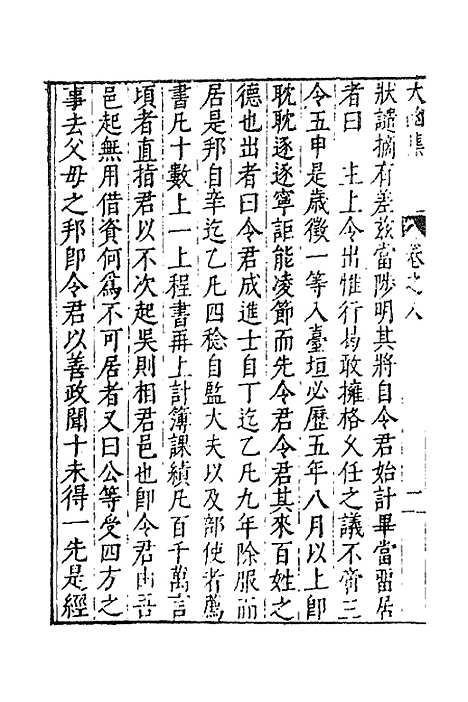 大函集 卷之八 二
狀譴摘有差茲當陟明其將自令君始計畢當畱居
者曰 主上令出惟行曷敢擁格久任之議不啻三
令五申是歲徵一等入臺垣必歷五年八月以上卽
耽耽逐逐寧詎能凌節而先令君令君其來百姓之
德也出者曰令君成進士自丁迄乙凡九年除服而
居是邦自辛迄乙凡四稔自監大夫以及部使者薦
書凡十數上一上程書再上計簿課績凡百千萬言
頃者直指君以不次起吳則相君邑也卽令君由吾
邑起無用借資何爲不可居者又曰公等受四方之
事去父毋之邦卽令君以善政聞十未得一先是經